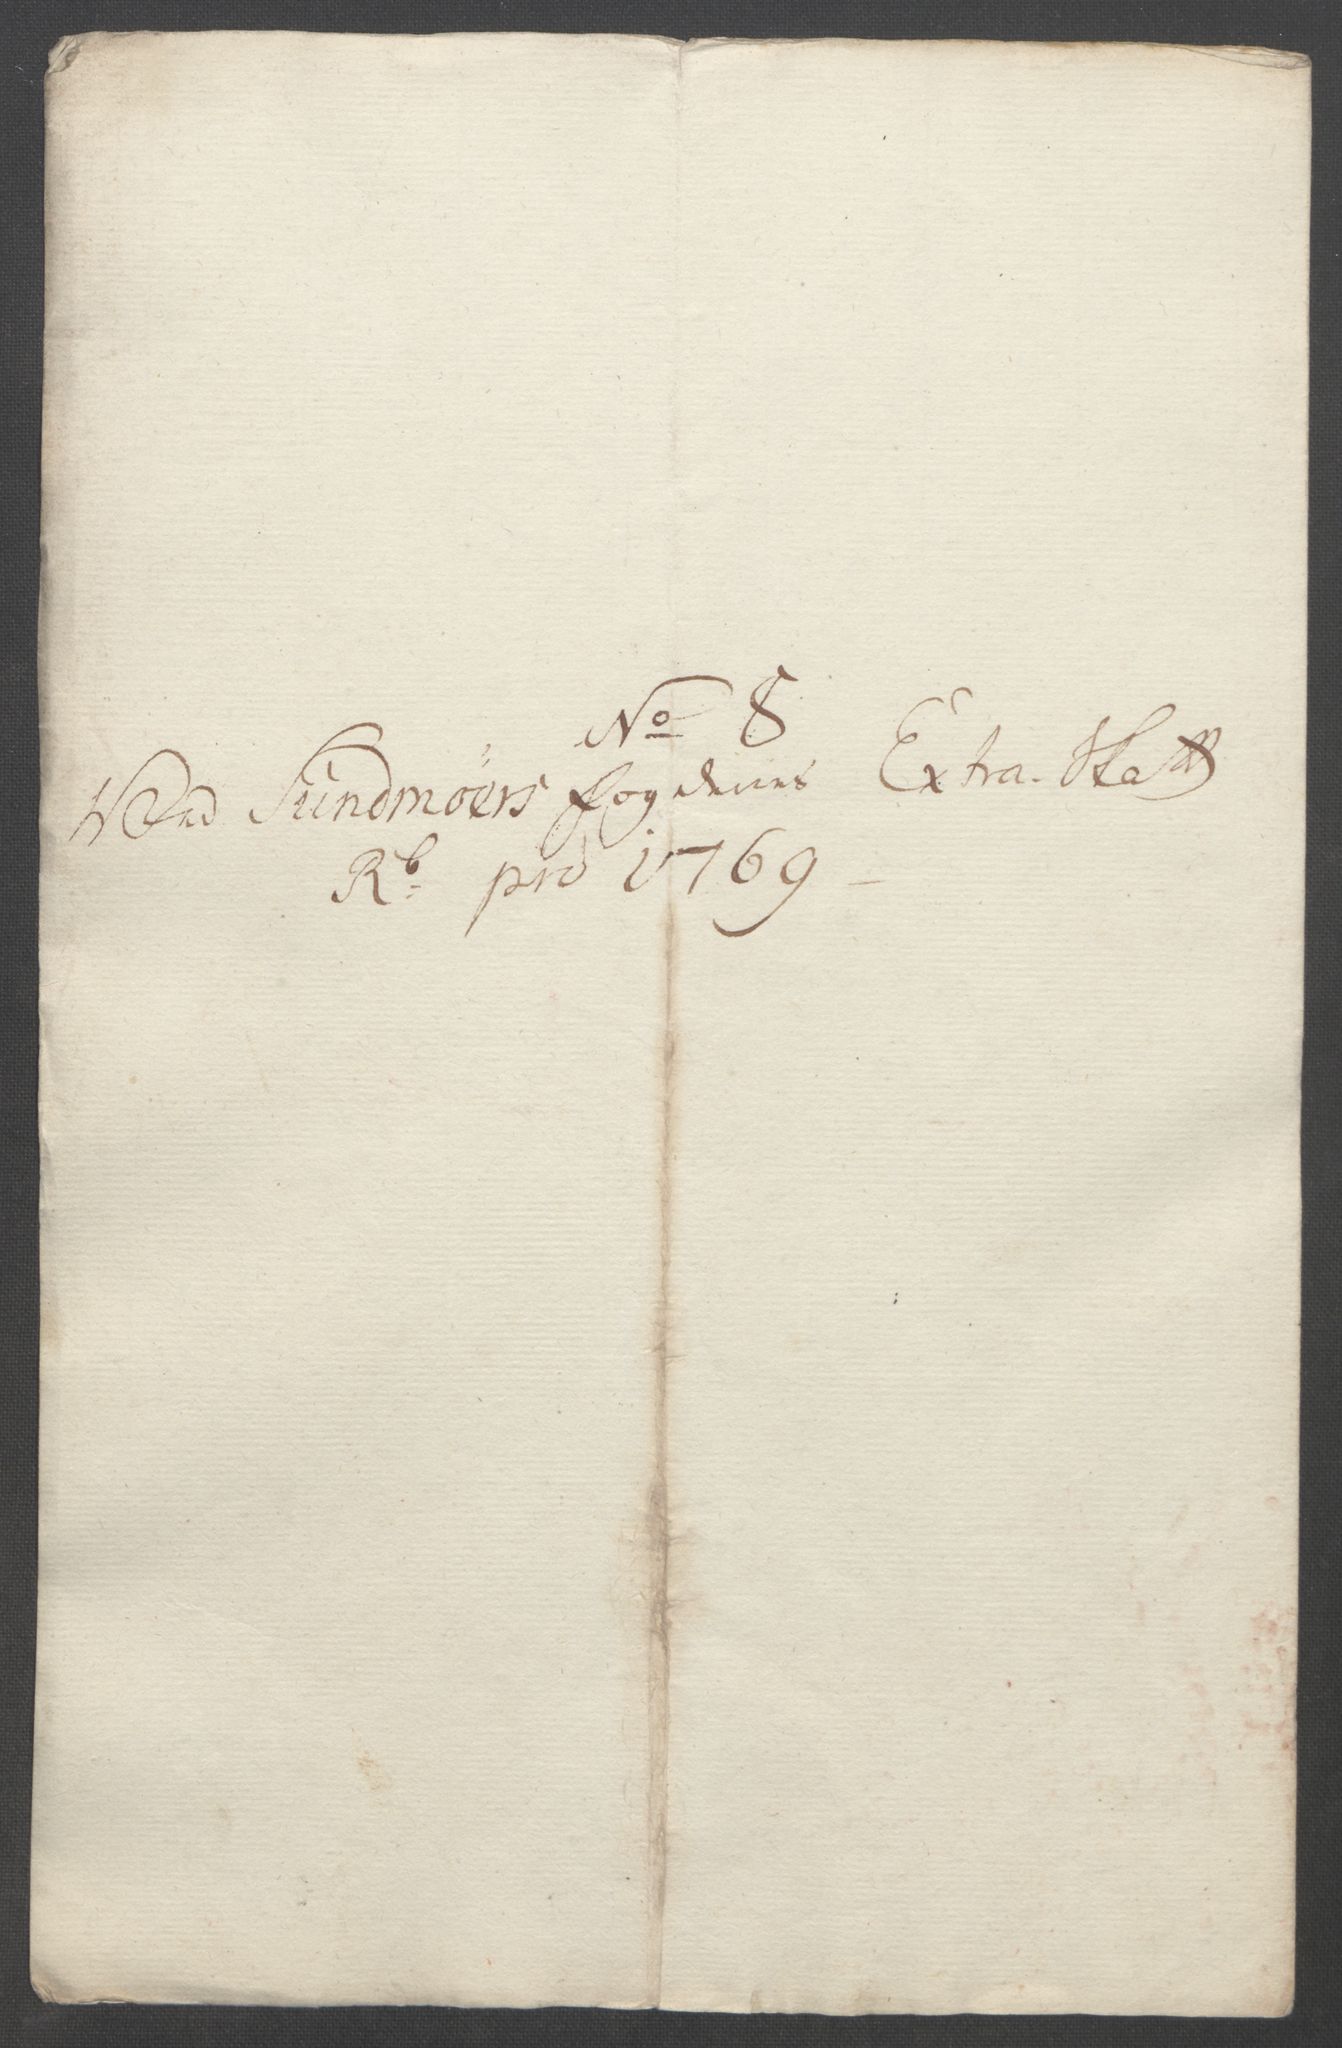 No 8
Ved Sundmøers fogderies Extra Skatt
Rb. pro 1769